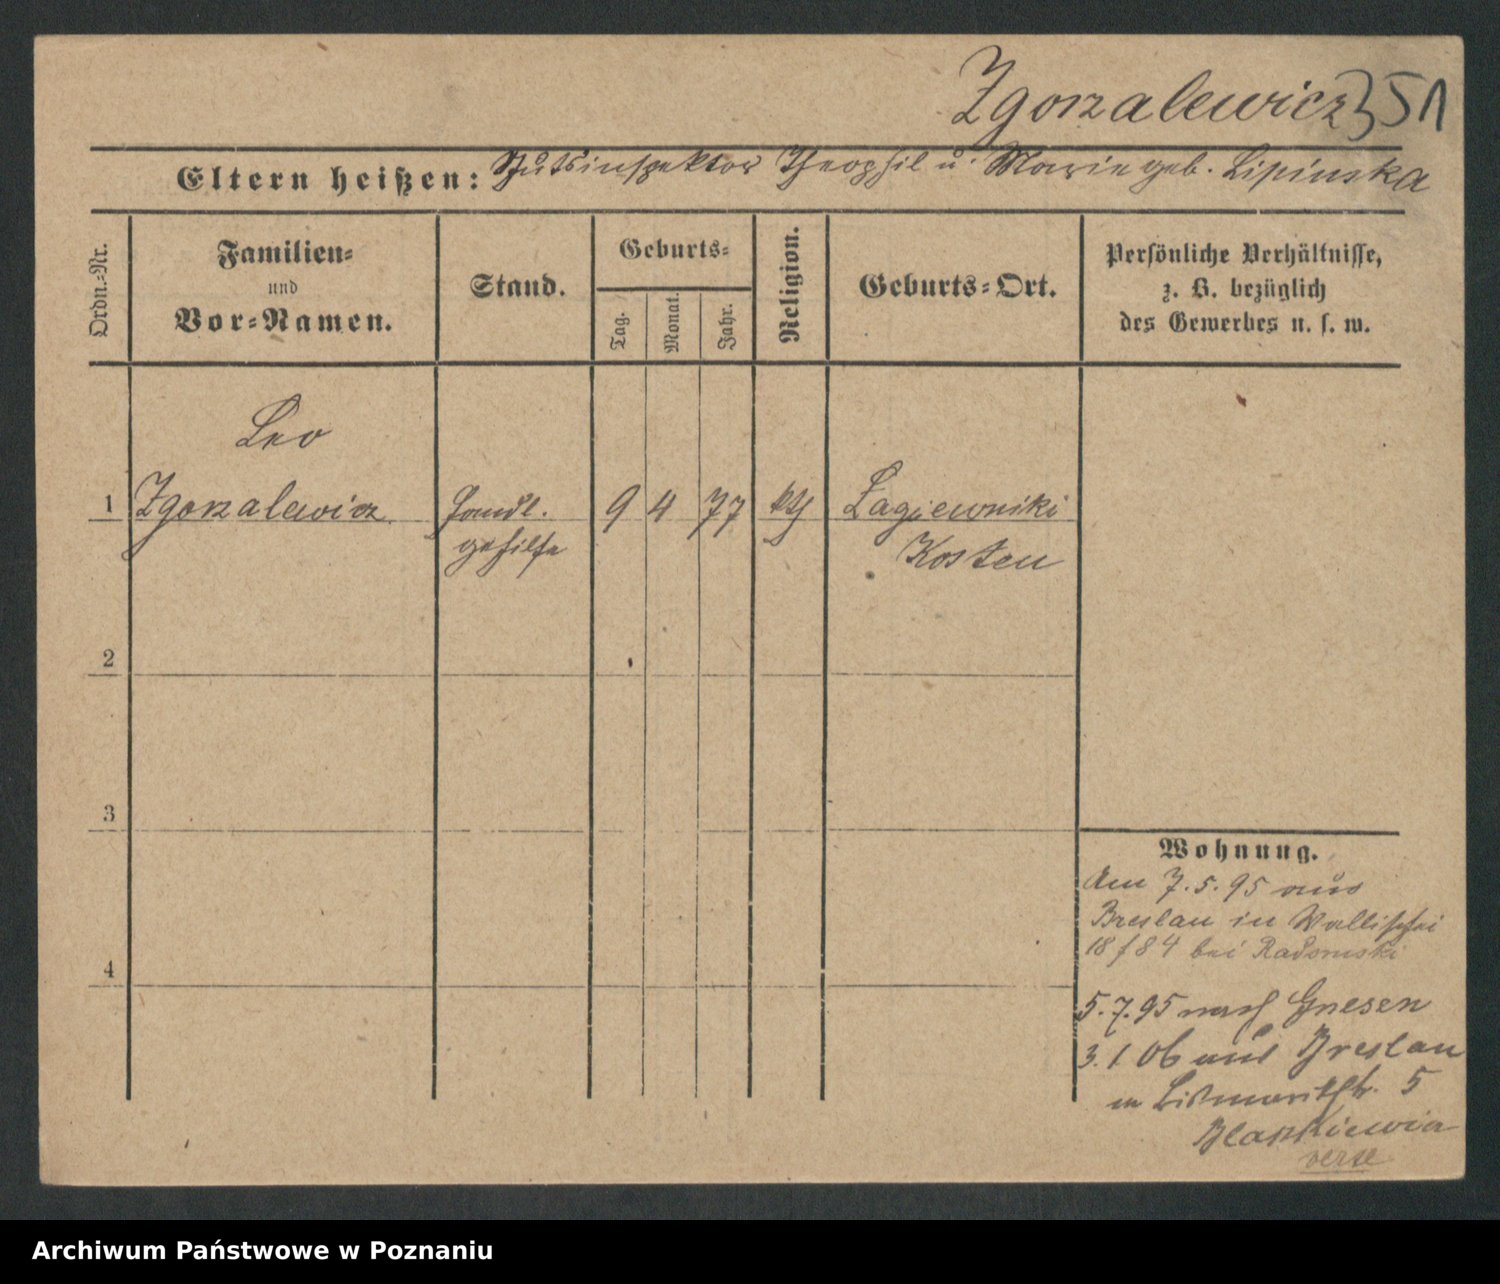 Zgorzalewicz 351
Eltern heißen: Gutsinspektor Theophil u. Marie geb. Lipinska
Ordn.-Nr.
Familien-
und
Vor-Namen.
Stand.
Geburts-
Tag.
Monat.
Jahr.
Religion.
Geburts-Ort.
Persönliche Verhältnisse,
z. B. bezüglich
des Gewerbes u. s. w.
Leo
1 Zgorzalewicz Handl. 9 4 77 kth Lagiewniki
gehilfe Kosten
2
3
4
Wohnung.
Am 7.5.95 aus
Breslau in Wallischei
18/84 bei Radomski
5.7.95 nach Gnesen
3.1.06 aus Breslau
in Bismarckstr. 5
verte
Archiwum Państwowe w Poznaniu